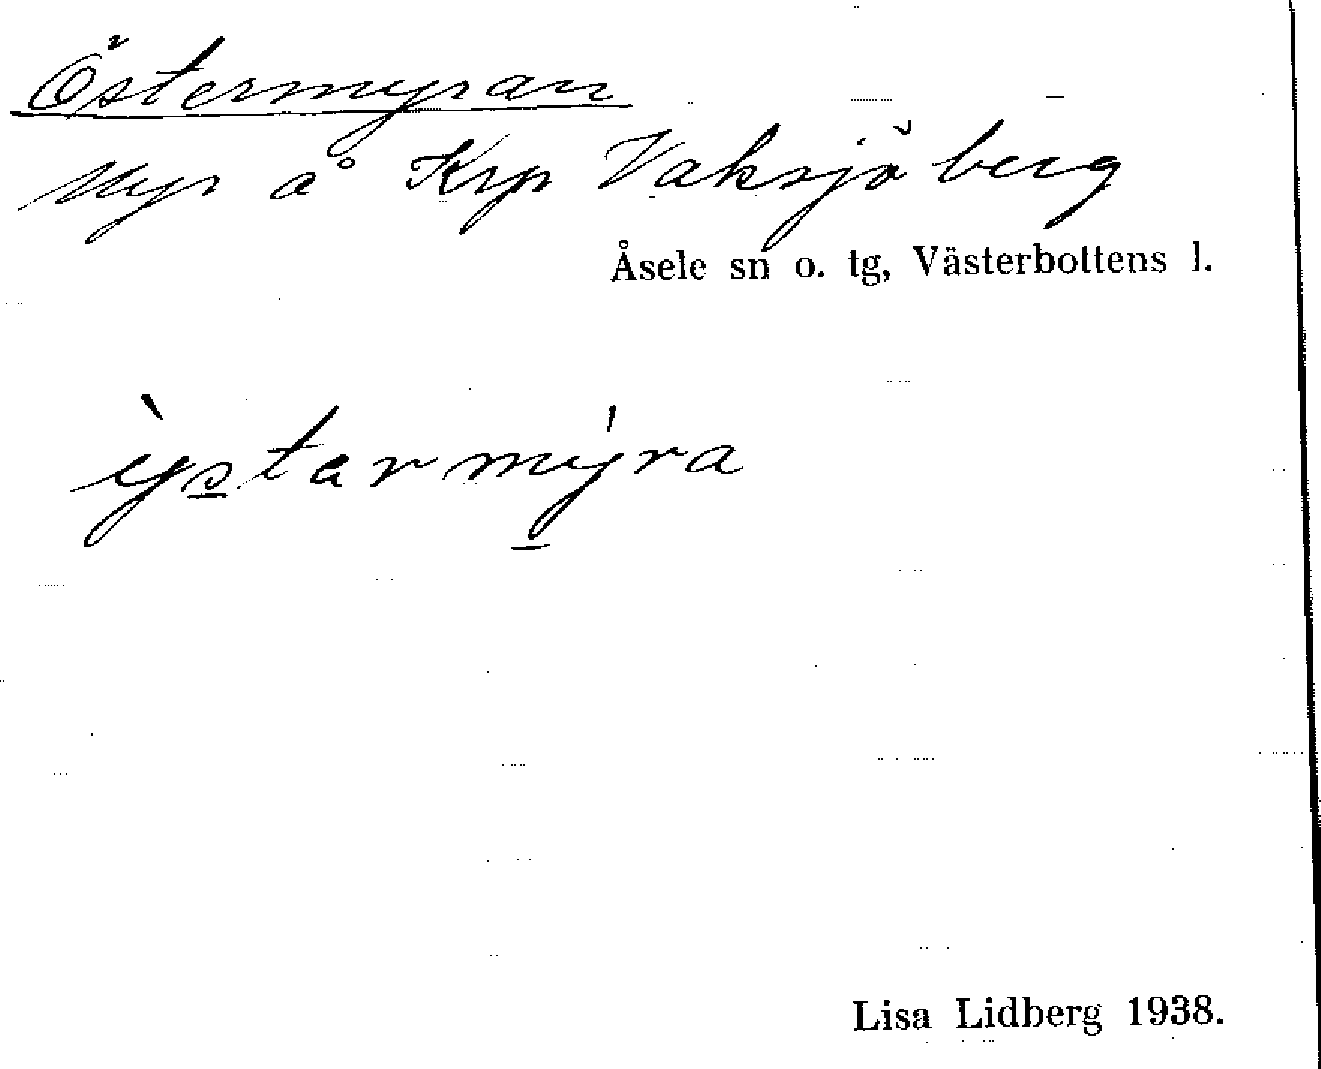 Östermyran
Myr å Krp Vaksjöberg
Åsele sn o. tg, Västerbottens l.
ỳstarmýra
Lisa Lidberg 1938.